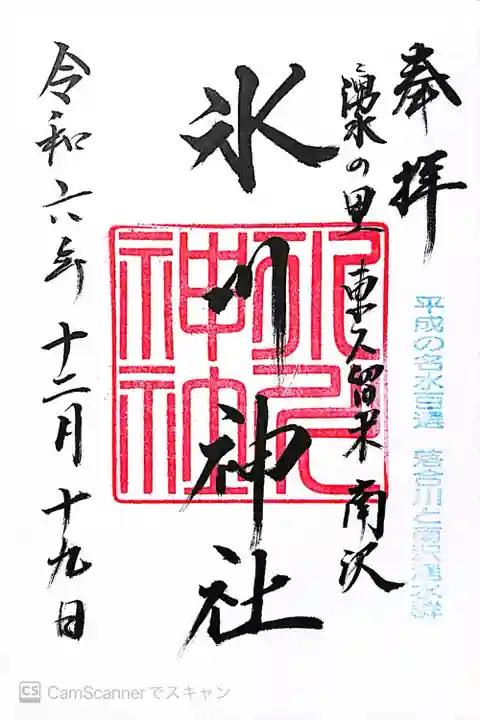 奉拝
平成の名水百選 落合川と南沢湧水群
湧水の里 東久留米 南沢
氷川神社
氷川神社
令和六年 十二月 十九日
CS CamScannerでスキャン